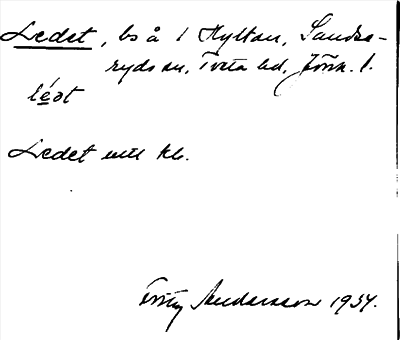 Ledet, bs å 1 Hyltan, Sandse-
ryds sn, Tveta hd, Jönk. l.
léət
Ledet uttl kb.
Fritz Andersson 1934.